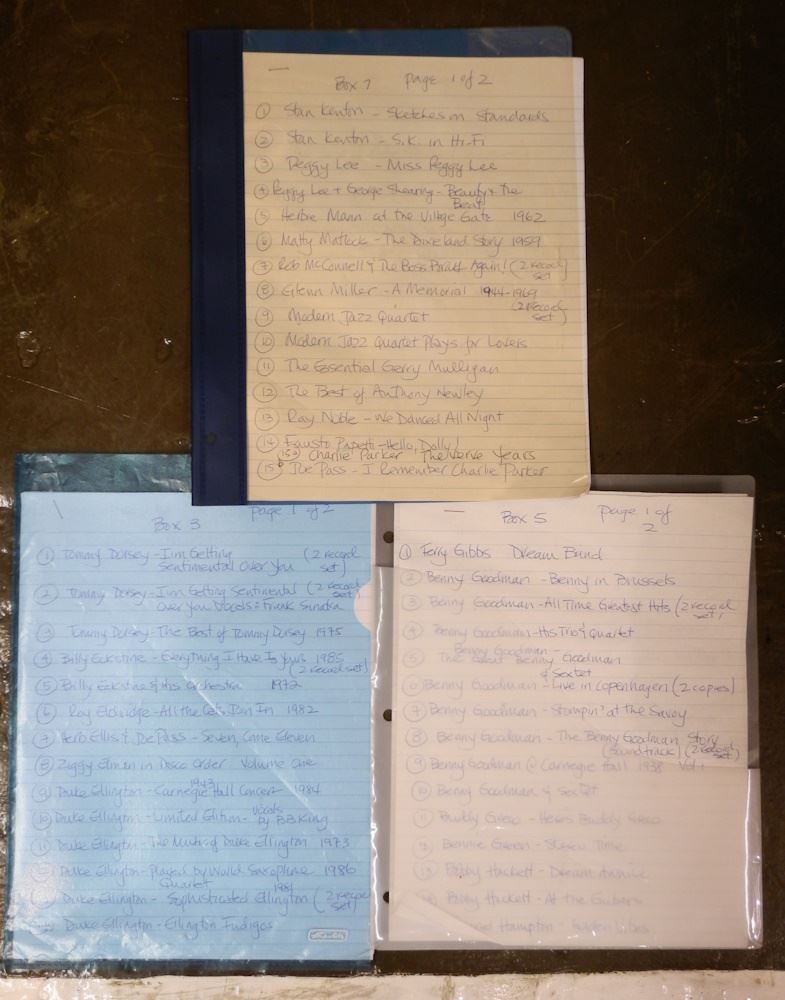 Box 7 page 1 of 2
1 Stan Kenton - Sketches on Standards
2 Stan Kenton - S.K. in Hi-Fi
3 Peggy Lee - Miss Peggy Lee
4 Peggy Lee + George Shearing - Beauty + the
Beat
5 Herbie Mann at the Village Gate 1962
6 Matty Matlock - The Dixieland Story 1959
7 Rob McConnell & The Boss Brass Again! (2 record
set
8 Glenn Miller - A Memorial 1944-1969
(2 record
set)
9 Modern Jazz Quartet
10 Modern Jazz Quartet Plays for Lovers
11 The Essential Gerry Mulligan
12 The Best of Anthony Newley
13 Ray Noble - We Danced All Night
14 Fausto Papetti - Hello, Dolly!
15a Charlie Parker The Verve Years
15b Joe Pass - I Remember Charlie Parker
Box 3 page 1 of 2
1 Tommy Dorsey - I'm Getting (2 record
Sentimental Over You set)
2 Tommy Dorsey - I'm Getting Sentimental (2 record
Over You Vocals: Frank Sinatra set)
3 Tommy Dorsey - The Best of Tommy Dorsey 1975
4 Billy Eckstine - Everything I Have Is Yours 1985
(2 record set)
5 Billy Eckstine & his orchestra 1972
6 Roy Eldridge - All the Cats Join In 1982
7 Herb Ellis & Joe Pass - Seven, Come Eleven
8 Ziggy Elman in Disco Order Volume One
1943
9 Duke Ellington - Carnegie Hall Concert 1984
10 Duke Ellington - Limited Edition - Vocals
by BB King
11 Duke Ellington - The Music of Duke Ellington 1973
12 Duke Ellington - Played by World Saxophone 1986
Quartet
Duke Ellington - Sophisticated Ellington (2 record
set)
Duke Ellington - Ellington Indigos
Box 5 page 1 of
2
1 Terry Gibbs Dream Band
2 Benny Goodman - Benny in Brussels
3 Benny Goodman - All Time Greatest Hits (2 record
set)
4 Benny Goodman - His Trio & Quartet
Benny Goodman -
5 The Great Benny Goodman
& Sextet
6 Benny Goodman - Live in Copenhagen (2 copies)
7 Benny Goodman - Stompin' at the Savoy
8 Benny Goodman - The Benny Goodman Story
(Soundtrack) (2 record
set)
9 Benny Goodman @ Carnegie Hall 1938 Vol 1
10 Benny Goodman & Sextet
11 Buddy Greco - Here's Buddy Greco
Bennie Green
13 Bobby Hackett - Dream Awhile
Bobby Hackett - At the
Hampton - Golden Vibes